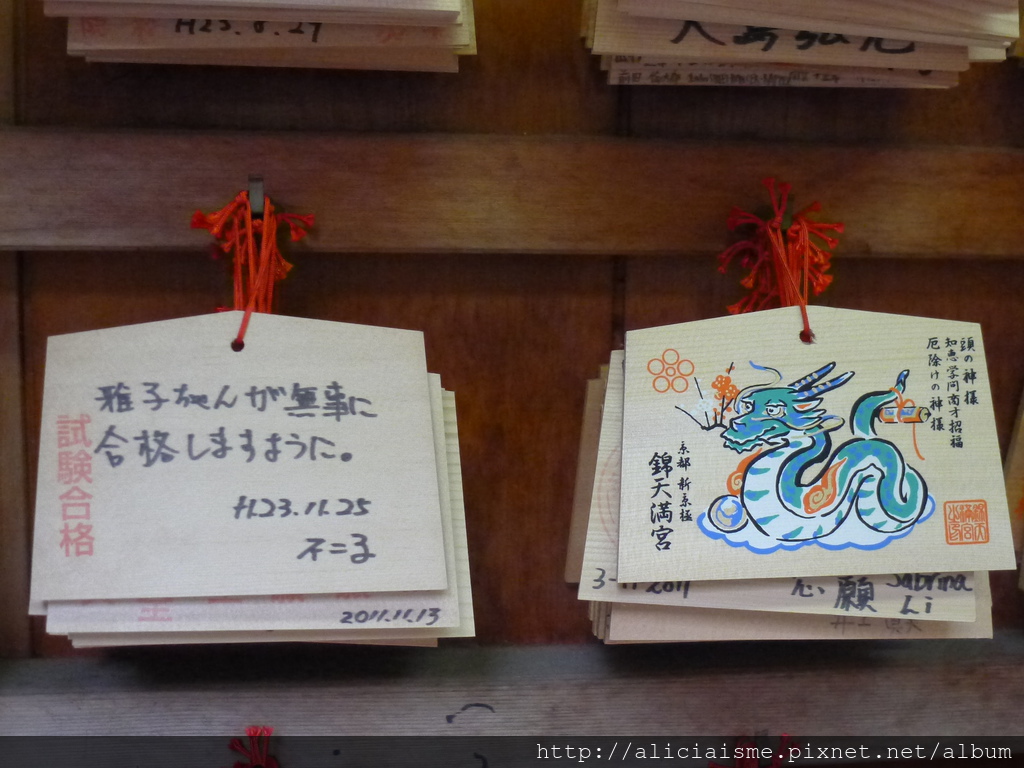 H23.8.29
雅子ちゃんが無事に
合格しますように。
試験合格
H23.11.25
不二子
2011.11.13
頭の神様
知恵学問商才招福
厄除けの神様
京都 新京極
錦天満宮
2011
願
Sabrina
Li
http://aliciaisme.pixnet.net/album